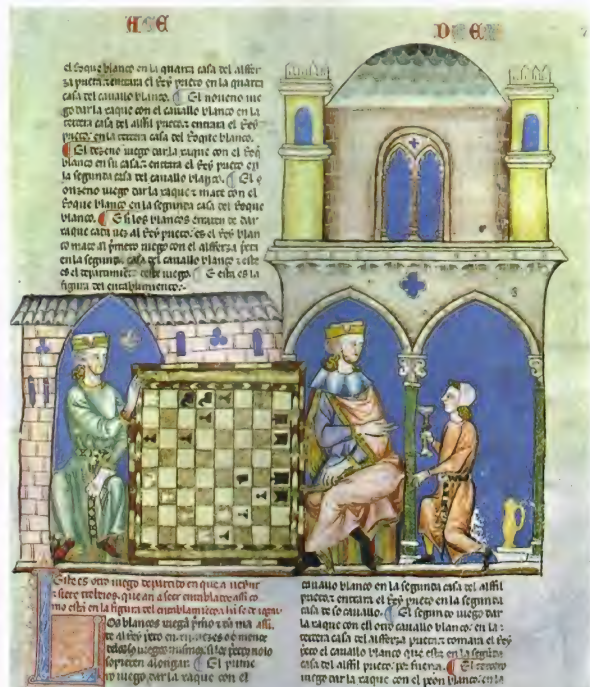 el Roque blanco en la quarta casa del alffer
za prieta: entrara el Rey prieto en la quarta
casa del cauallo blanco. El noueno iue
go dar la xaque con el cauallo blanco en la
tercera casa del alffil prieto: entrara el Rey
prieto en la tercera casa del Roque blanco.
El dezeno iuego dar la xaque con el Roq
blanco en su casa: entrara el Rey prieto en
la segunda casa del cauallo blanco. El o
onzeno iuego dar la xaque: mate con el
Roque blanco en la segunda casa del Roque
blanco. E si los blancos erraren de dar
xaque cada uez al Rey prieto: es el Rey blan
co mate al primero iuego con el alfferza prieta
en la segunda casa del cauallo: este
es el departimiento deste iuego. E esta es la
figura del entablamiento:-
Este es otro iuego departido en que a ueynt
siete trebeios, que an a seer entablados assi co
mo esta en la figura del entablamiento:
Los blancos iuegan primero: dan mate
al Rey prieto en
iuegos
sopieren alongar. El prime
ro iuego dar la xaque con el
cauallo blanco en la segunda casa del alffil
prieto: entrara el Rey prieto en la segunda
casa de so cauallo. El segundo iuego dar
la xaque con ell otro cauallo blanco en la
tercera casa del alfferza prieta: tomara el Rey
prieto el cauallo blanco que esta en la segunda
casa del alffil prieto: por fuerça. El tercero
iuego dar la xaque con el peon blanco en la